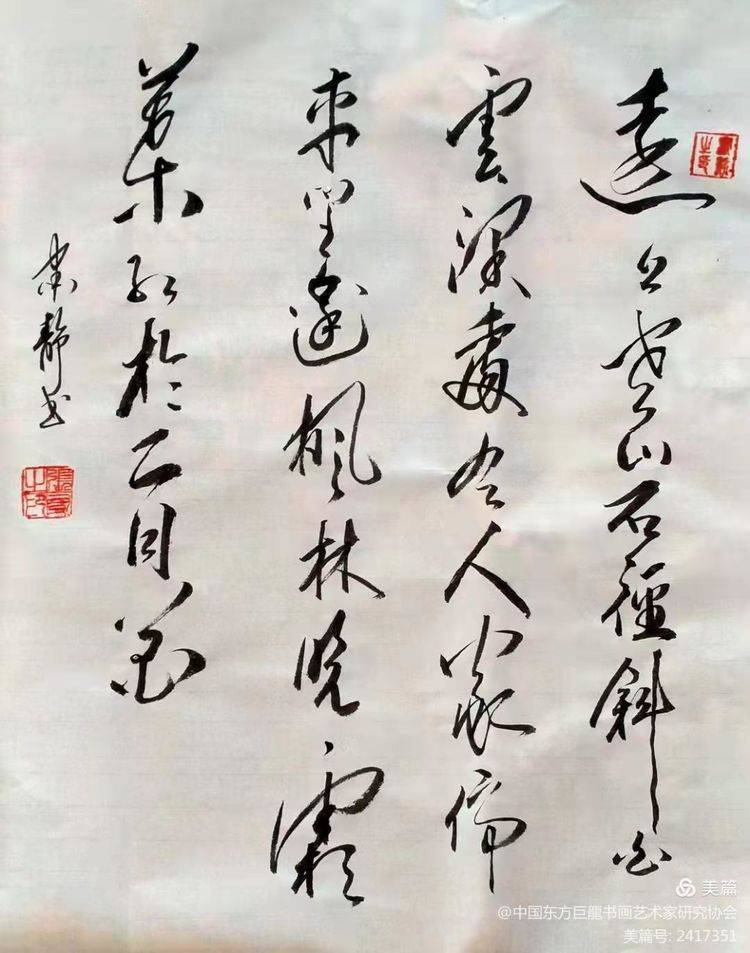 遠上寒山石徑斜白
雲深處有人家停
車坐愛楓林晚霜
葉紅於二月花
静书
美篇
@中国东方巨龍书画艺术家研究协会
美篇号: 2417351